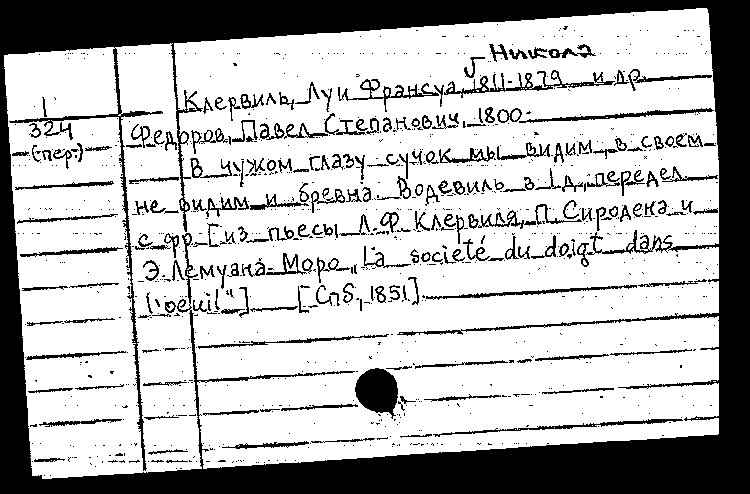 Никола
Клервиль, Луи Франсуа, 1811-1879 и др.
1
324
(пер.)
Федоров, Павел Степанович, 1800-
В чужом глазу сучок мы видим, в своем
не видим и бревна. Водевиль в 1 д., передел.
с фр. [из пьесы Л.Ф. Клервиля, П. Сиродена и
Э. Лемуана-Моро „La societé du doigt dans
l'oeuil"] [Спб, 1851].